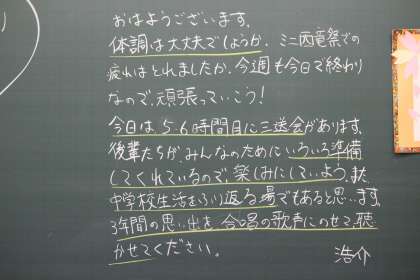 おはようございます。
体調は大丈夫でしょうか。ミニ西竜祭での
疲れはとれましたか。今週も今日で終わり
なので、頑張っていこう！
今日は5.6時間目に三送会があります。
後輩たちが、みんなのためにいろいろ準備
してくれているので、楽しみにしていよう。また、
中学校生活をふり返る場でもあると思います。
3年間の思い出を、合唱の歌声にのせて、聴
かせてください。
浩介